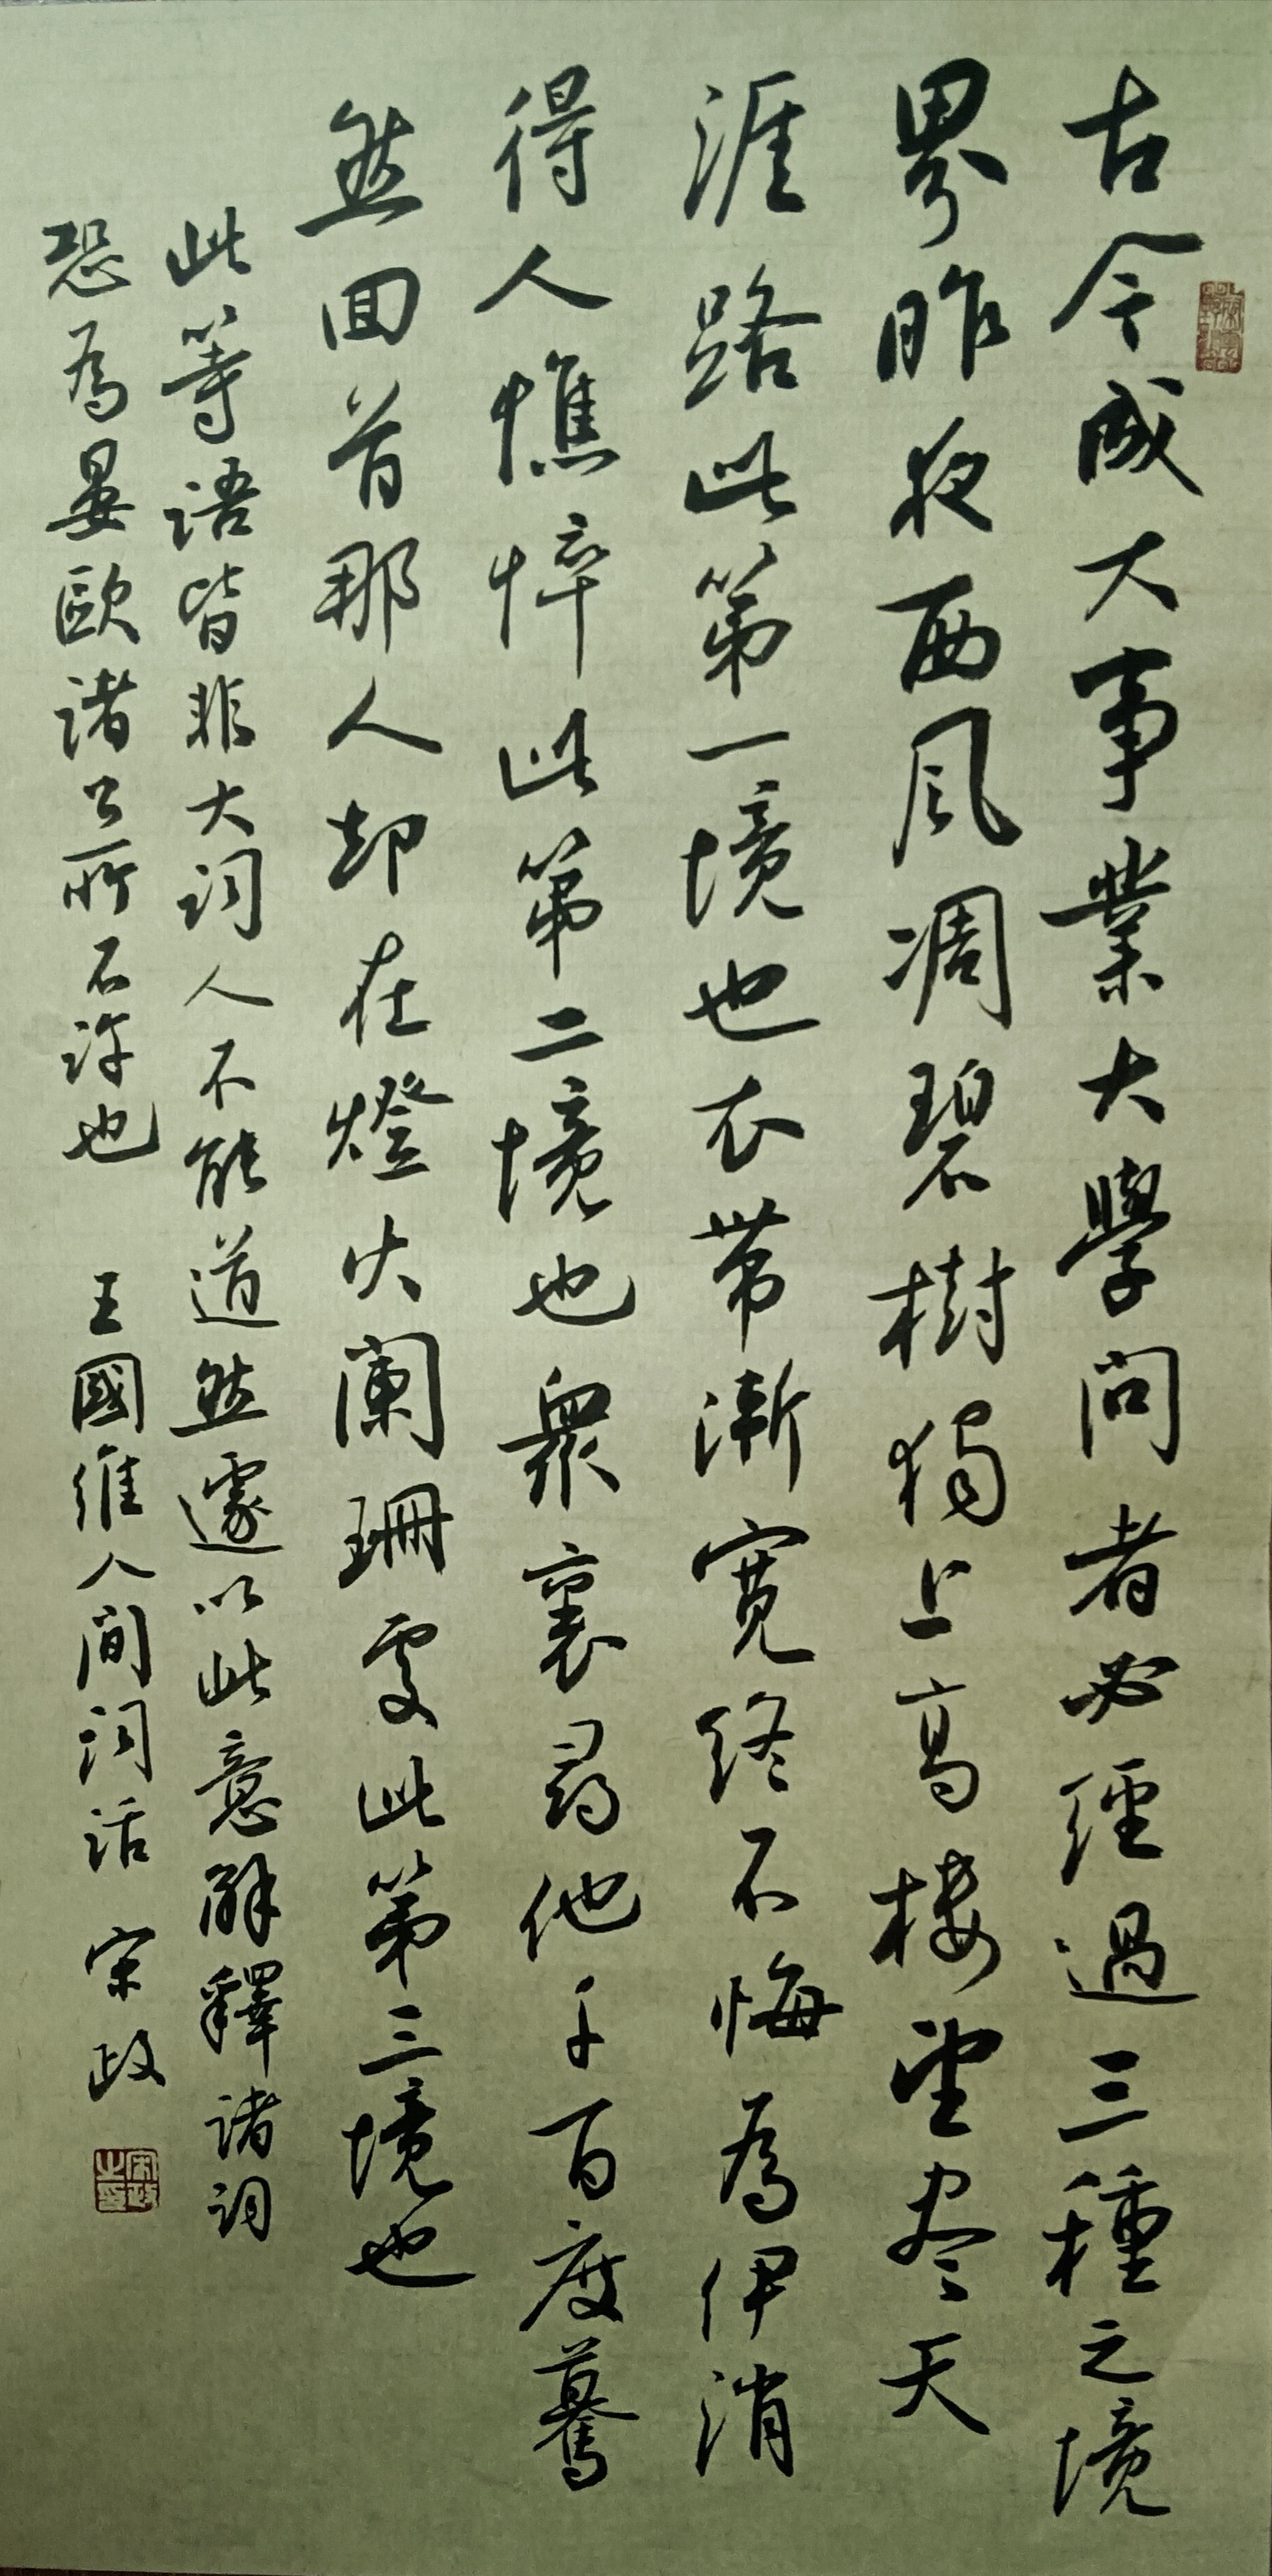 古今成大事業大學問者必經過三種之境
界昨夜西風凋碧樹獨上高樓望盡天
涯路此第一境也衣帶漸寬終不悔為伊消
得人憔悴此第二境也眾裏尋他千百度驀
然回首那人却在燈火闌珊處此第三境也
此等語皆非大詞人不能道然遽以此意解釋諸詞
恐為晏歐諸公所不許也 王國維人間詞話 宋政
宋政之印